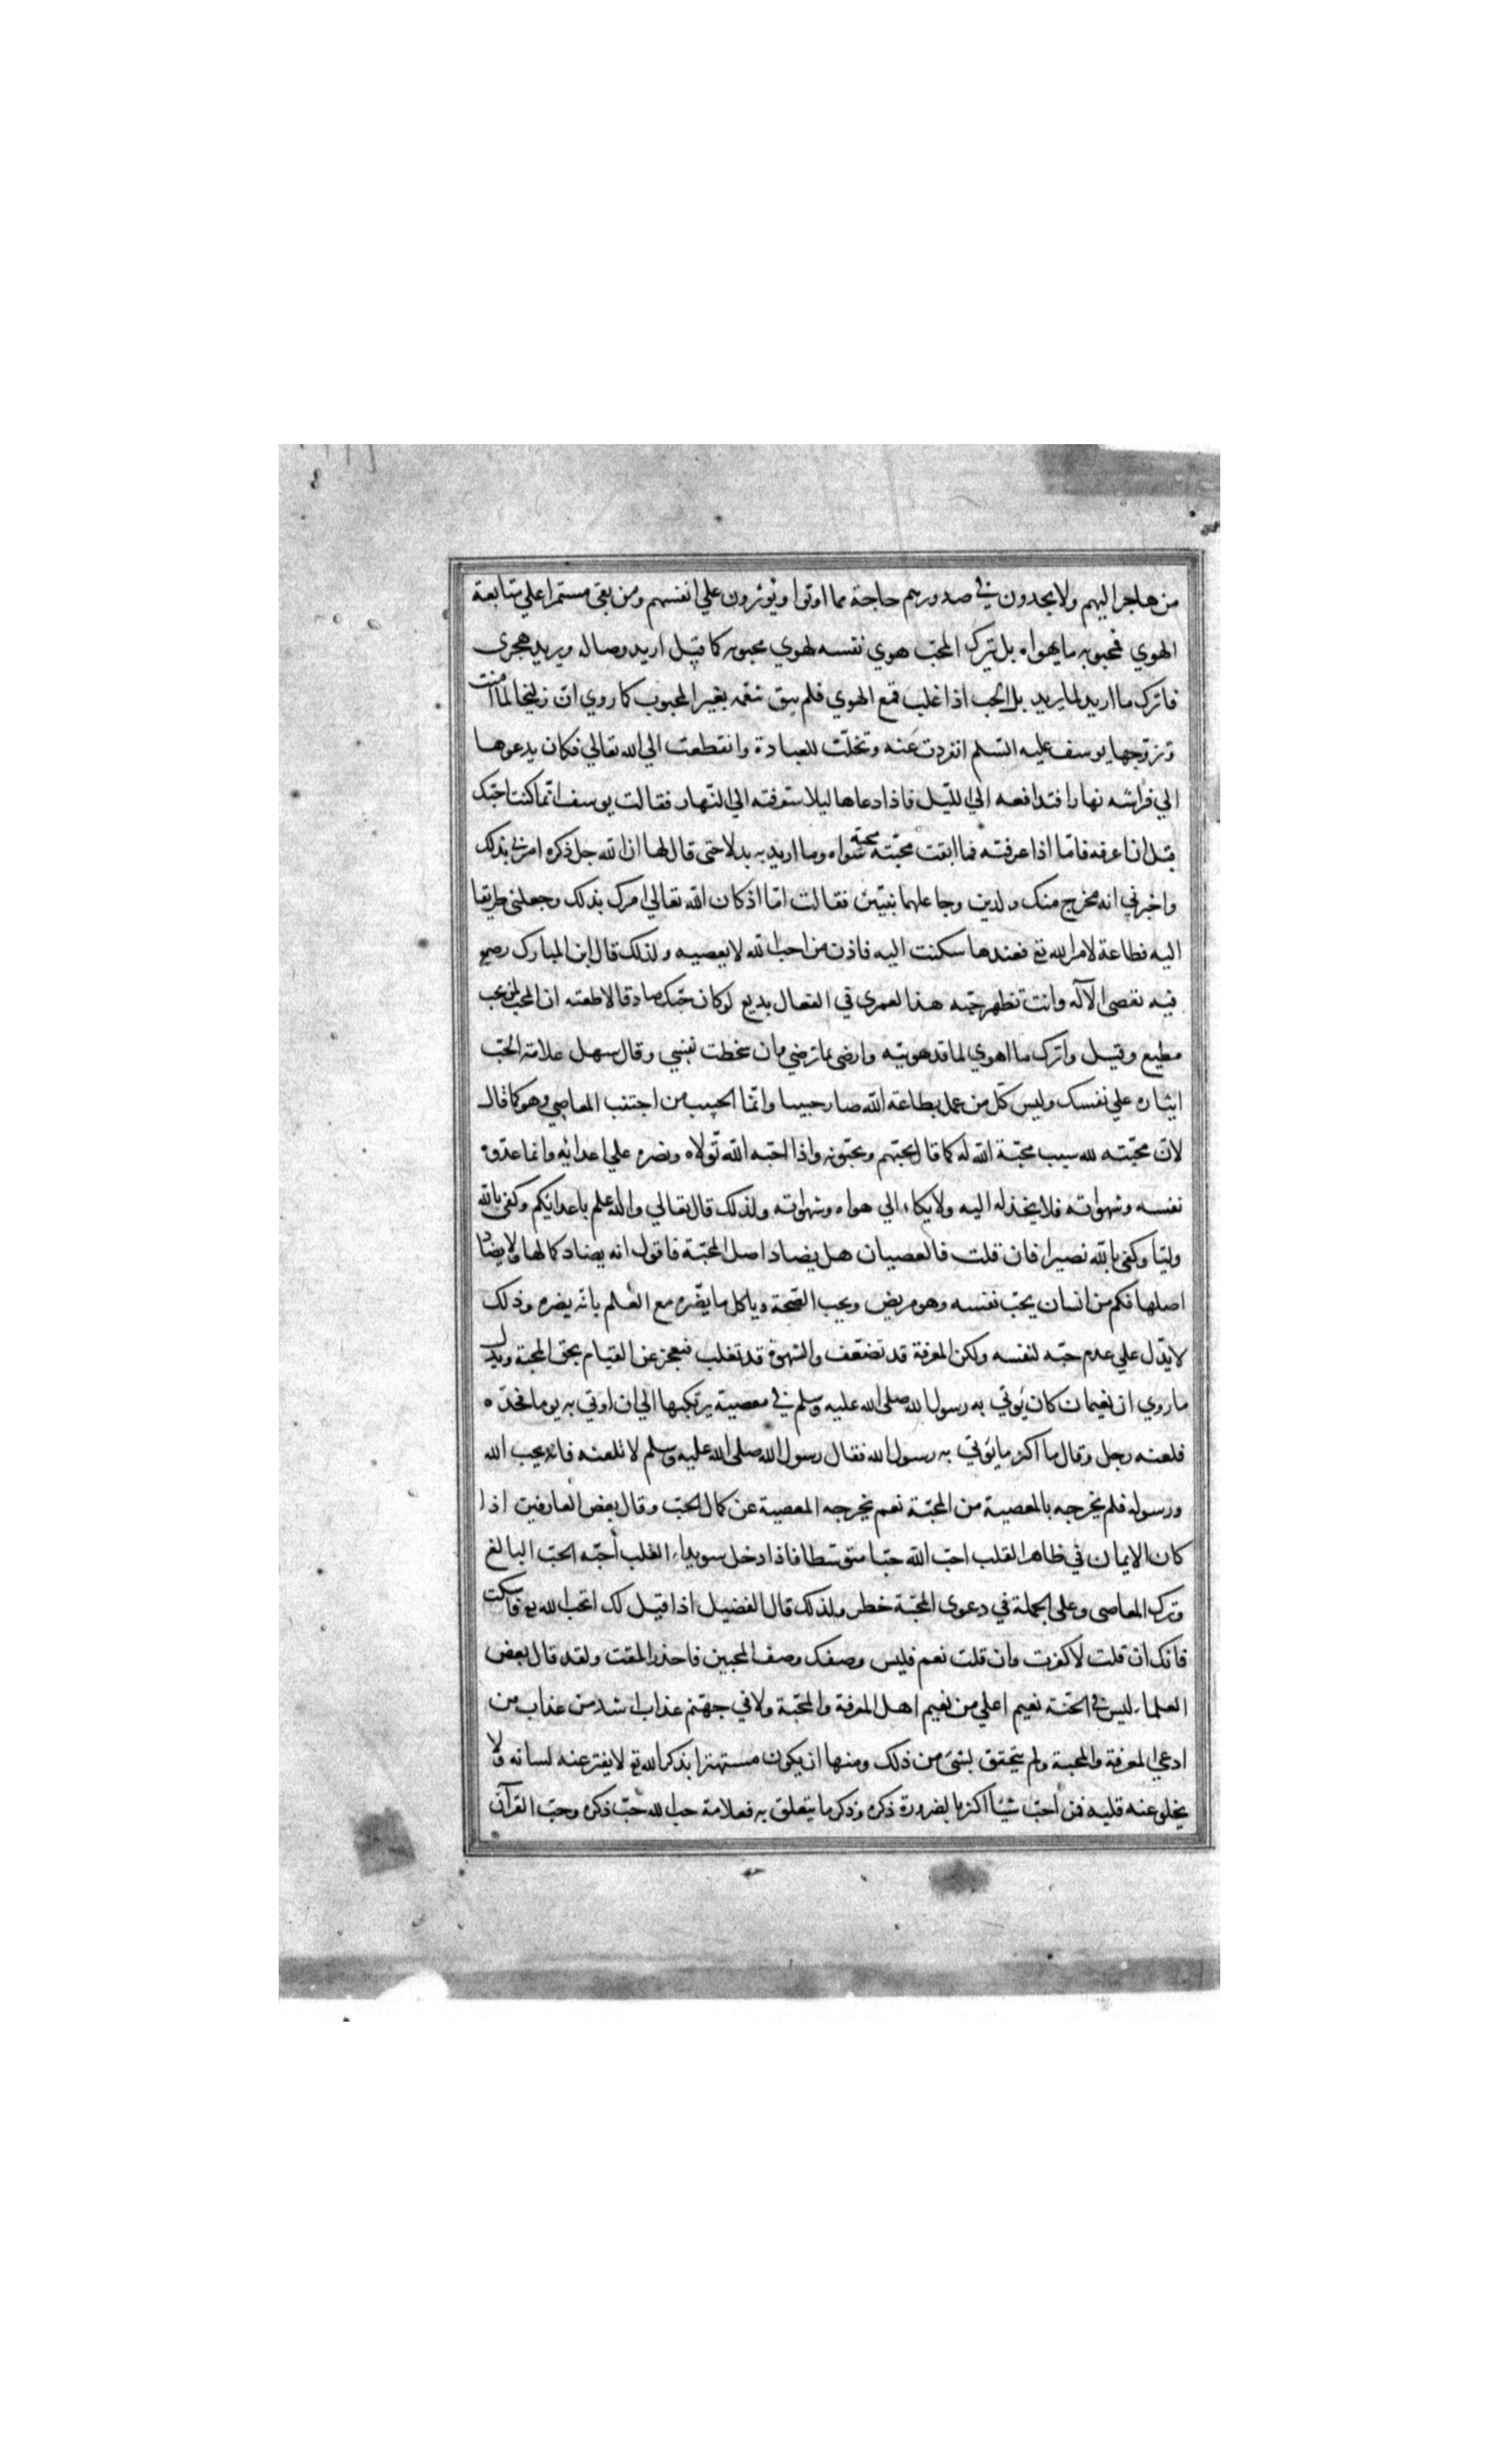 من هاجر اليهم ولا يجدون في صدورهم حاجة مما اوتوا ويوثرون علي انفسهم ومن بقي مستمرا علي متابعة
الهوي فمحبوبه ما يهواه بل يترك المحبّ هوي نفسه لهوي محبوبه كما قيل اريد وصاله ويريد هجري
فاترك ما اريد لما يريد بل الحب اذا غلب قمع الهوي فلم يبق تنعّم بغير المحبوب كما روي انّ زليخا لما آمنت
وتزوّجها يوسف عليه السّلم انفردت عنه وتخلّت للعبادة وانقطعت الي الله تعالي فكان يدعوها
الي فراشه نهارا فتدافعه الي اللّيل فاذا دعاها ليلا سوّفته الي النّهار فقالت يوسف انّما كنت احبّك
قبل ان اعرفه فامّا اذا عرفته فما ابقت محبّته محبة سواه وما اريد به بدلا حتي قال لها ان الله جل ذكره امرني بذلك
واخبرني انه مخرج منك ولدين وجاعلهما نبيّين فقالت امّا اذ كان الله تعالي امرك بذلك وجعلني طريقا
اليه فطاعة لامر الله تع فعندها سكنت اليه فاذن من احب الله لا يعصيه ولذلك قال ابن المبارك رضع
فيه تعصي الآله وانت تظهر حبّه هذا لعمري في الفعال بديع لو كان حبّك صادقا لاطعته ان المحب لمن يحب
مطيع وقيل واترك ما اهوي لما قد هويته وارضي بما ترضي وان سخطت نفسي وقال سهل علامة الحبّ
ايثاره علي نفسك وليس كلّ من عمل بطاعة الله صار حبيبا وانّما الحبيب من اجتنب المعاصي وهو كما قال
لانّ محبّته لله سبب محبّة الله له كما قال يحبّهم ويحبّونه واذا احبّه الله تولاه ونصره علي اعدائه وانما عدوّه
نفسه وشهواته فلا يخذله اليه ولا يكله الي هواه وشهواته ولذلك قال تعالي والله اعلم باعدائكم وكفي بالله
وليّا وكفي بالله نصيرا فان قلت فالعصيان هل يضاد اصل المحبّة فاقول انه يضاد كمالها ولا يضاد
اصلها فكم من انسان يحبّ نفسه وهو مريض ويحب الصّحة وياكل ما يضّره مع العلم بانّه يضره وذلك
لا يدّل علي عدم حبّه لنفسه ولكن المعرفة قد تضعّف والشهوة قد تغلب فيعجز عن القيام بحق المحبة ويدل
ما روي ان نعيمان كان يؤتي به رسول الله صلى الله عليه وسلم في معصية يرتكبها الي ان اوتي به يوما فحدّه
فلعنه رجل وقال ما اكثر ما يؤتي به رسول الله فقال رسول الله صلى الله عليه وسلم لا تلعنه فانه يحب الله
ورسوله فلم يخرجه بالمعصية من المحبّة نعم يخرجه المعصية عن كمال الحبّ وقال بعض العارفين اذا
كان الايمان في ظاهر القلب احبّ الله حبّا متوسّطا فاذا دخل سويداء القلب أحبّه الحبّ البالغ
وترك المعاصي وعلى الجملة في دعوى المحبّة خطر ولذلك قال الفضيل اذا قيل لك اتحبّ الله تع فاسكت
فانك ان قلت لا كفرت وان قلت نعم فليس وصفك وصف المحبين فاحذر المقت ولقد قال بعض
العلماء ليس في الجّنة نعيم اعلي من نعيم اهل المعرفة والمحبّة ولا في جهنّم عذاب اشد من عذاب من
ادعي المعرفة والمحبة ولم يتحقق بشئ من ذلك ومنها ان يكون مستهترا بذكر الله تع لا يفتر عنه لسانه ولا
يخلو عنه قلبه فمن احبّ شيئا اكثر بالضرورة ذكره وذكر ما يتعلق به فعلامة حب الله حبّ ذكره وحبّ القرآن